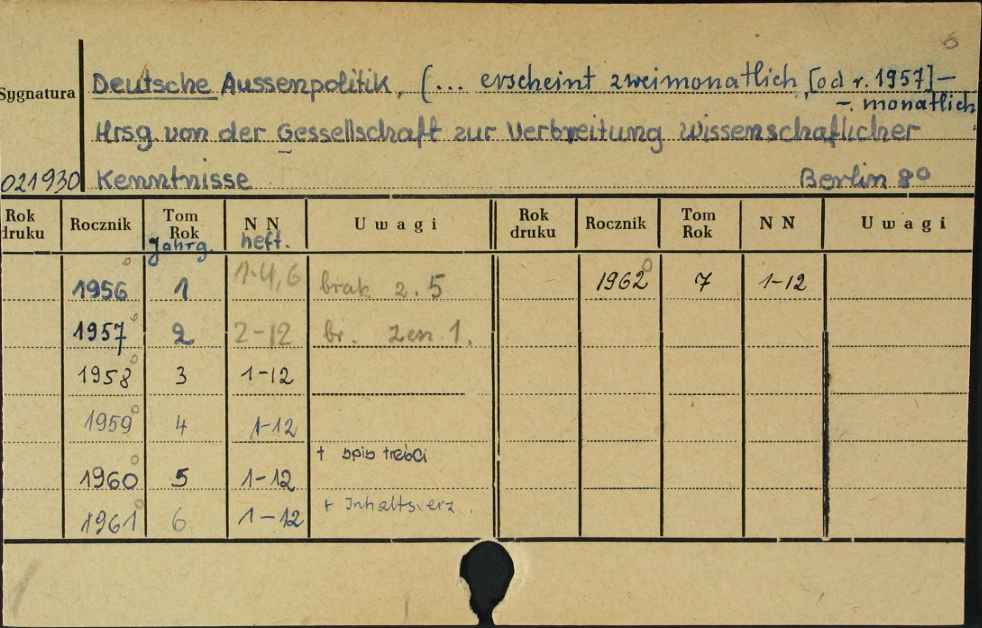 6
Sygnatura Deutsche Aussenpolitik, (... erscheint zweimonatlich, [od r. 1957] –
– monatlich
Hrsg. von der Gessellschaft zur Verbreitung Wissenschaflicher
021930 Kenntnisse Berlin 8°
Rok druku Rocznik Tom Rok Jahrg. N N heft. Uwagi Rok druku Rocznik Tom Rok N N Uwagi
1956 1 1-4,6 brak z. 5 1962 7 1-12
1957 2 2-12 br. zesz. 1.
1958 3 1-12
1959 4 1-12
1960 5 1-12 + spis treści
1961 6 1-12 + Inhaltsverz.